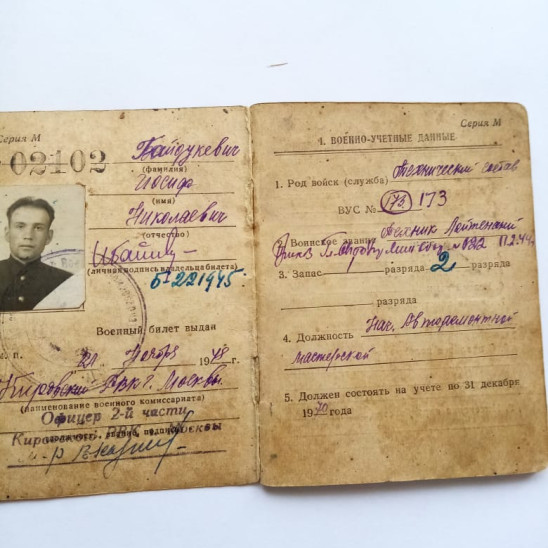 Серия М
02102
Байдукевич
(фамилия)
Иосиф
(имя)
Николаевич
(отчество)
(личная подпись владельца билета)
221945
Военный билет выдан
М. П. 21 Ноября 1948 г.
Кировский РВК г. Москвы
(наименование военного комиссариата)
Офицер 2-й части
Кировского РВК г. Москвы
Серия М
1. ВОЕННО-УЧЕТНЫЕ ДАННЫЕ
1. Род войск (служба) Технический состав
ВУС № 173 173
2. Воинское звание Техник Лейтенант
3. Запас разряда 2 разряда
разряда
4. Должность Нач. Авторемонтной
мастерской
5. Должен состоять на учете по 31 декабря
1970 года